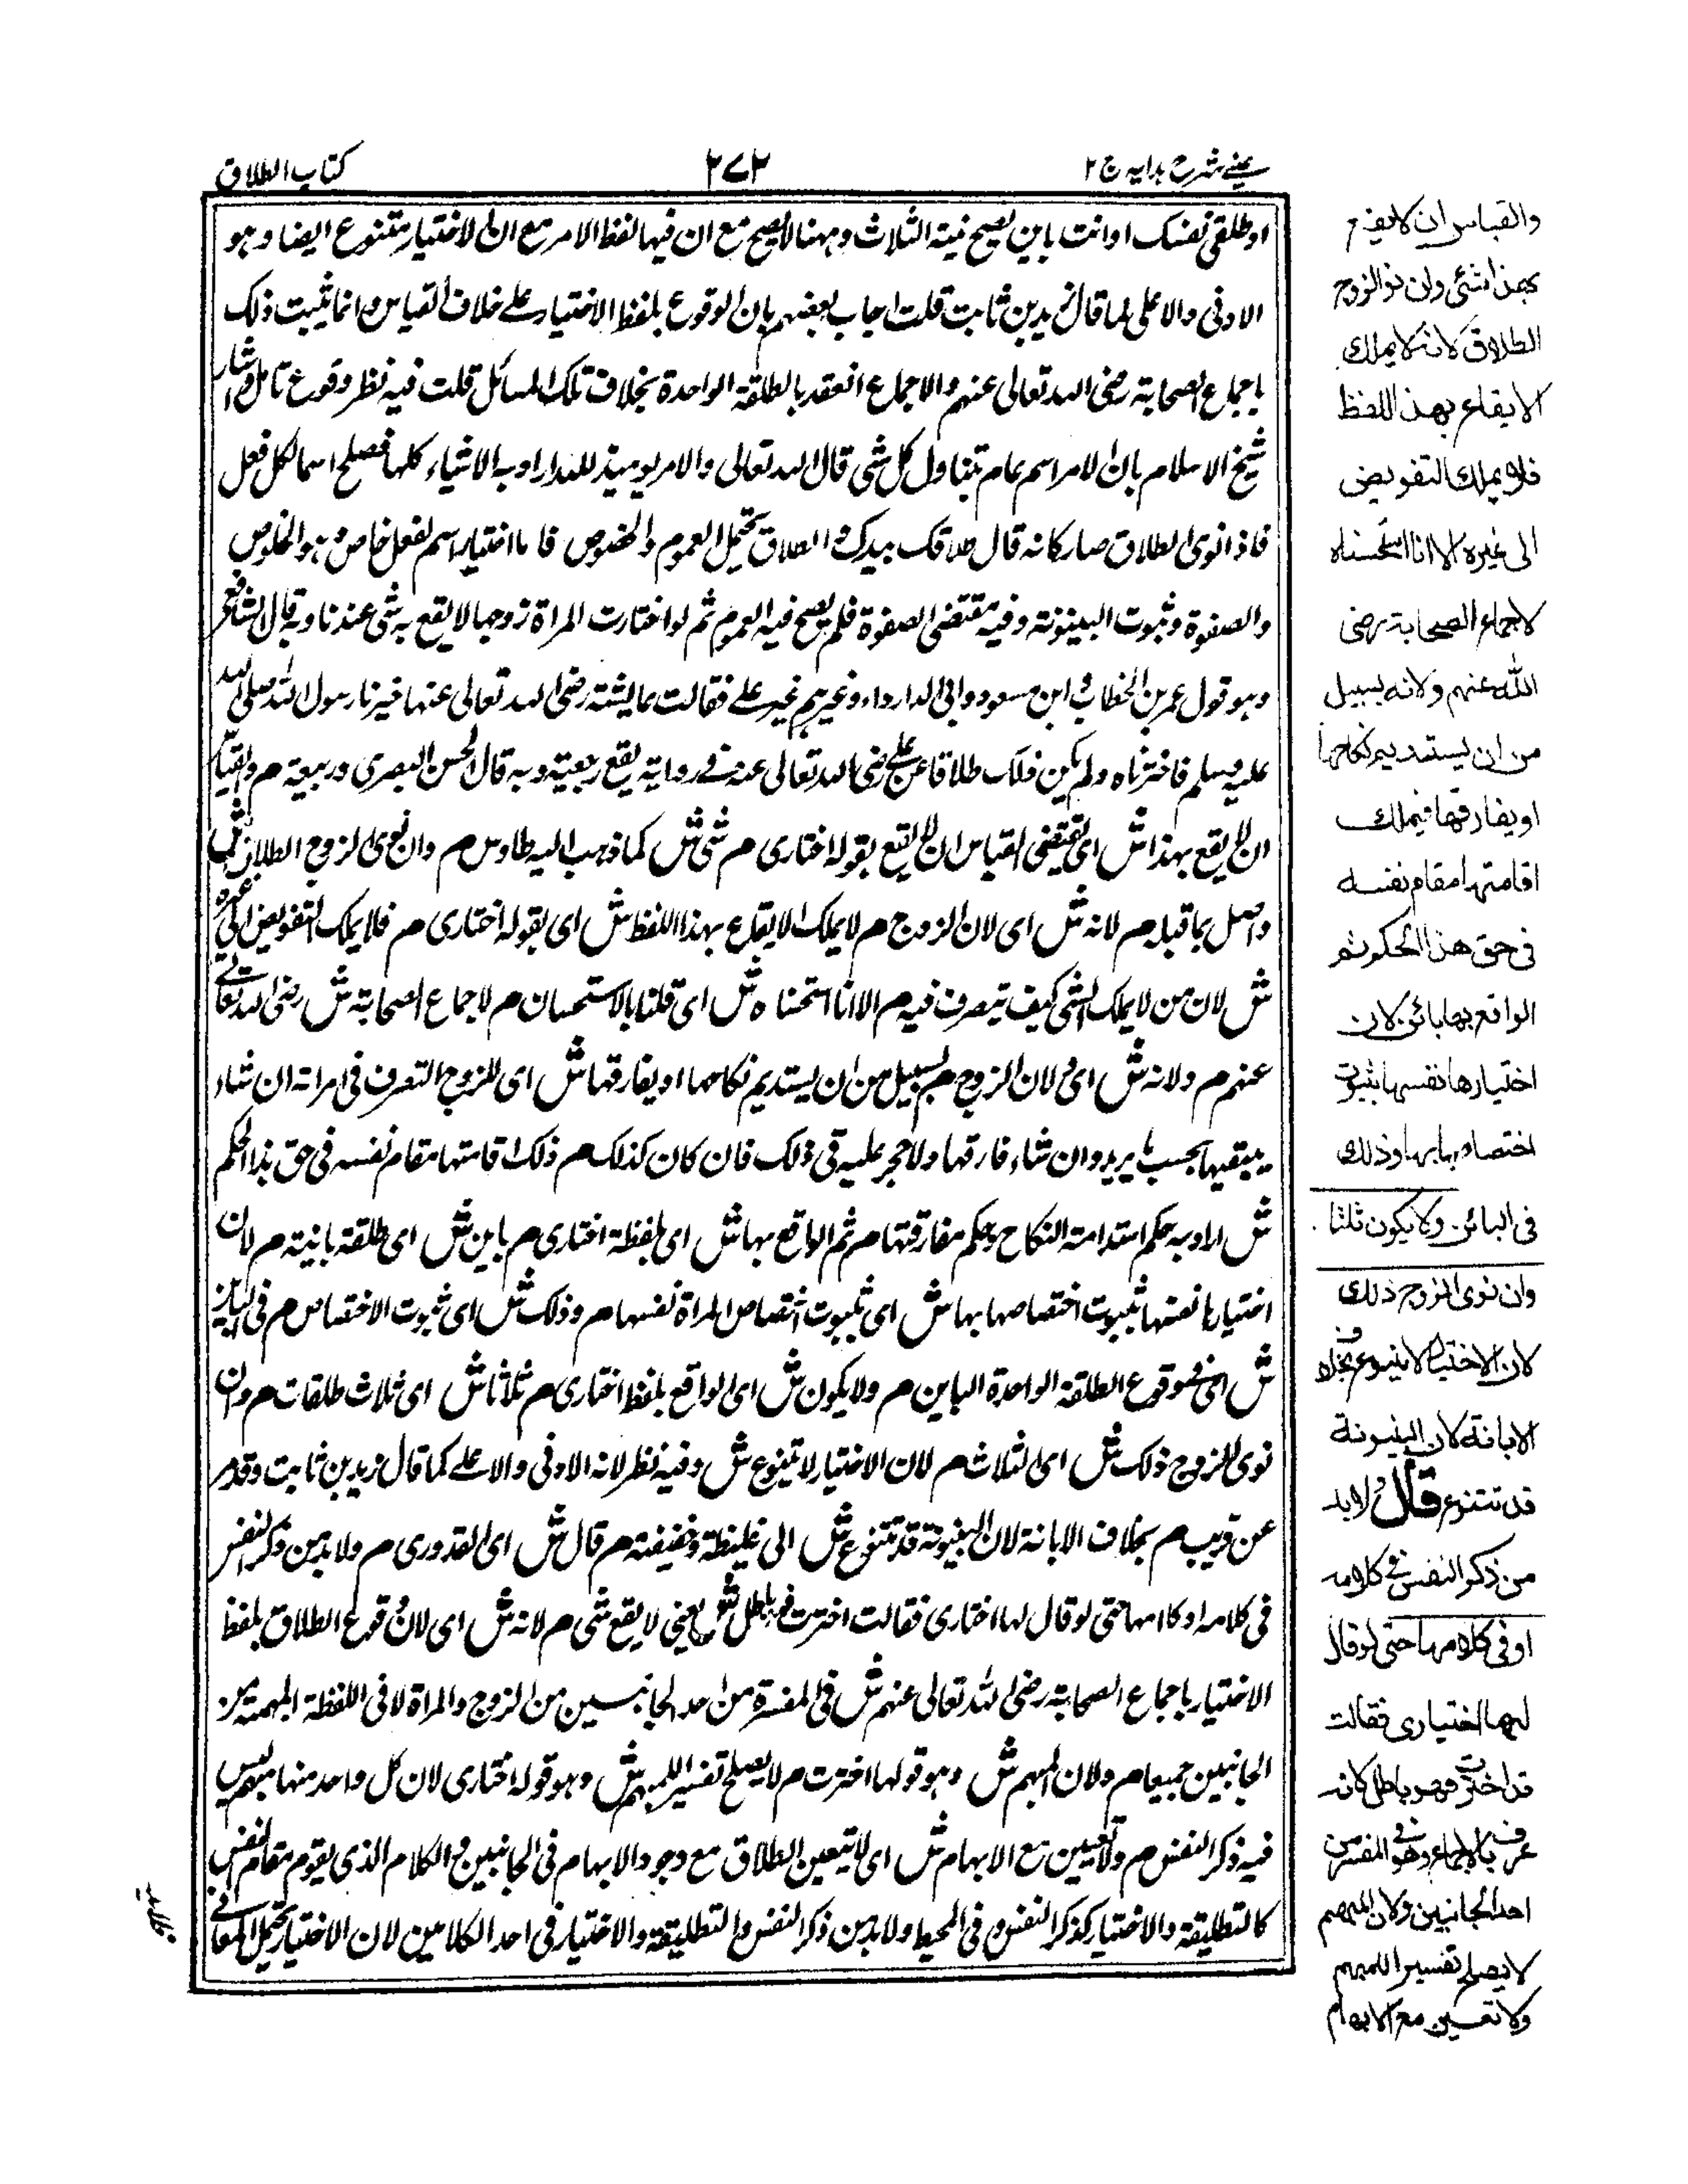 عينى شرح هدايه ج ٢
٢٧٢
كتاب الطلاق
او طلقى نفسك او انت باين يصح نية الثلاث وههنا لا يصح مع ان فيها لفظ الامر مع ان الاختيار متنوع ايضا وهو
الادنى والاعلى لما قال زيد بن ثابت قلت اجاب بعضهم بان الوقوع بلفظ الاختيار على خلاف القياس وانما يثبت ذلك
باجماع الصحابة رضى الله تعالى عنهم والاجماع انعقد بالطلقة الواحدة بخلاف تلك المسائل قلت فيه نظر وقوع تامل واشار
شيخ الاسلام بان الامر اسم عام تناول كل شى قال الله تعالى والامر يوميذ لله اراد به الاشياء كلها فصلح اسما لكل فعل
فاذا نوى الطلاق صار كانه قال طلاقك بيدك والطلاق يحتمل العموم والخصوص فاما اختيار اسم لفعل خاص وهو الخلوص
والصفوة وثبوت البينونة وفيه مقتضى الصفوة فلم يصح فيه العموم ثم لو اختارت المراة زوجها لا يقع به شى عندنا وبه قال الشافعى
وهو قول عمر بن الخطاب وابن مسعود وابى الدارداء وغيرهم غير على فقالت عايشة رضى الله تعالى عنها خيرنا رسول الله صلى الله
عليه وسلم فاخترناه ولم يكن ذلك طلاقا عن على رضى الله تعالى عنه فى رواية يقع رجعية وبه قال الحسن البصرى وربيعة م والقياس
ان لا يقع بهذا ش اى يقتضى القياس ان لا يقع بقوله اختارى م شى ش كما ذهب اليه طاوس م وان نوى الزوج الطلاق ش
واصل بما قبله م لانه ش اى لان الزوج م لا يملك الايقاع بهذا اللفظ ش اى بقوله اختارى م فلا يملك التفويض الى غيره
ش لان من لا يملك الشى كيف يتصرف فيه م الا انا استحسناه ش اى قلنا بالاستحسان م لاجماع الصحابة ش رضى الله تعالى
عنهم م ولانه ش اى ولان الزوج م بسبيل من ان يستديم نكاحها او يفارقها ش اى للزوج التصرف فى امراته ان شاء
يبقيها بحسب ما يريد وان شاء فارقها ولا حجر عليه فى ذلك فان كان كذلك م ذلك اقامتها مقام نفسه فى حق هذا الحكم
ش اراد به حكم استدامة النكاح وحكم مفارقتها م ثم الواقع بها ش اى بلفظة اختارى م باين ش اى طلقة باينة م لان
اختيارها نفسها بثبوت اختصاصها بها ش اى بثبوت اختصاص المراة نفسها م وذلك ش اى ثبوت الاختصاص م فى الباين
ش اى فى وقوع الطلقة الواحدة الباين م ولا يكون ش اى الواقع بلفظ اختارى م ثلاثا ش اى ثلاث طلقات م وان
نوى الزوج ذلك ش اى الثلاث م لان الاختيار لا يتنوع ش وفيه نظر لانه الادنى والاعلى كما قال زيد بن ثابت وقد مر
عن قريب م بخلاف الابانة لان البينونة قد تتنوع ش الى غليظة وخفيفة م قال ش اى القدورى م ولا بد من ذكر النفس
فى كلامه او كلامها حتى لو قال لها اختارى فقالت اخترت فهو باطل ش يعنى لا يقع شى م لانه ش اى لان وقوع الطلاق بلفظ
الاختيار باجماع الصحابة رضى الله تعالى عنهم ش فى المفسرة من احد الجانبين من الزوج والمراة لا فى اللفظة المبهمة من
الجانبين جميعا م ولان المبهم ش وهو قولها اخترت م لا يصلح تفسير اللمبهم ش وهو قوله اختارى لان كل واحد منها مبهم ليس
فيه ذكر النفس م ولا تعيين مع الابهام ش اى لا يتعين الطلاق مع وجود الابهام فى الجانبين والكلام الذى يقوم مقام النفس
كالتطليقة والاختيار كذكر النفس وفى المحيط ولا بد من ذكر النفس والتطليقة والاختيار فى احد الكلامين لان الاختيار يحتمل المعانى
والقياس ان لا يقع
بهذا شئ وان نوى الزوج
الطلاق لانه لا يملك
الايقاع بهذا اللفظ
فلا يملك التفويض
الى غيره الا انا استحسناه
لاجماع الصحابة رضى
الله عنهم ولانه بسبيل
من ان يستديم نكاحها
او يفارقها فيملك
اقامتها مقام نفسه
فى حق هذا الحكم ثم
الواقع بها بائن لان
اختيارها نفسها بثبوت
اختصاصها بها وذلك
فى البائن ولا يكون ثلثا
وان نوى الزوج ذلك
لان الاختيار لا يتنوع بخلاف
الابانة لان البينونة
قد تتنوع قال ولا بد
من ذكر النفس فى كلامه
او فى كلامها حتى لو قال
لها اختيارى فقالت
قد اخترت فهو باطل لانه
عرف بالاجماع وهو فى المفسر من
احد الجانبين ولان المبهم
لا يصلح تفسيرا للمبهم
ولا تعيين مع الابهام